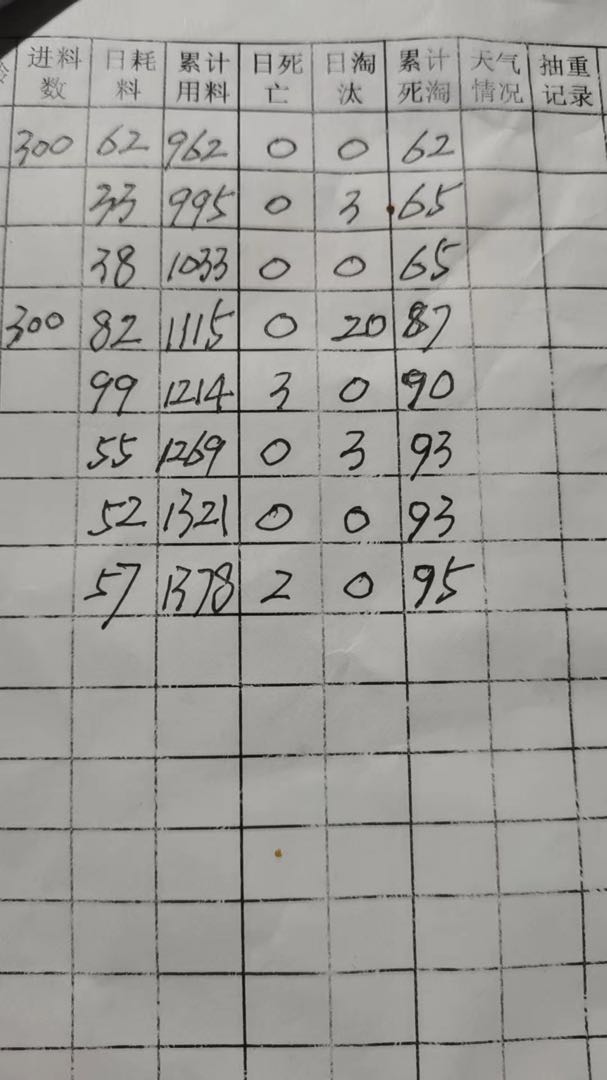 龄 进料数 日耗料 累计用料 日死亡 日淘汰 累计死淘 天气情况 抽重记录
300 62 962 0 0 62
33 995 0 3 65
38 1033 0 0 65
300 82 1115 0 20 87
99 1214 3 0 90
55 1269 0 3 93
52 1321 0 0 93
57 1378 2 0 95